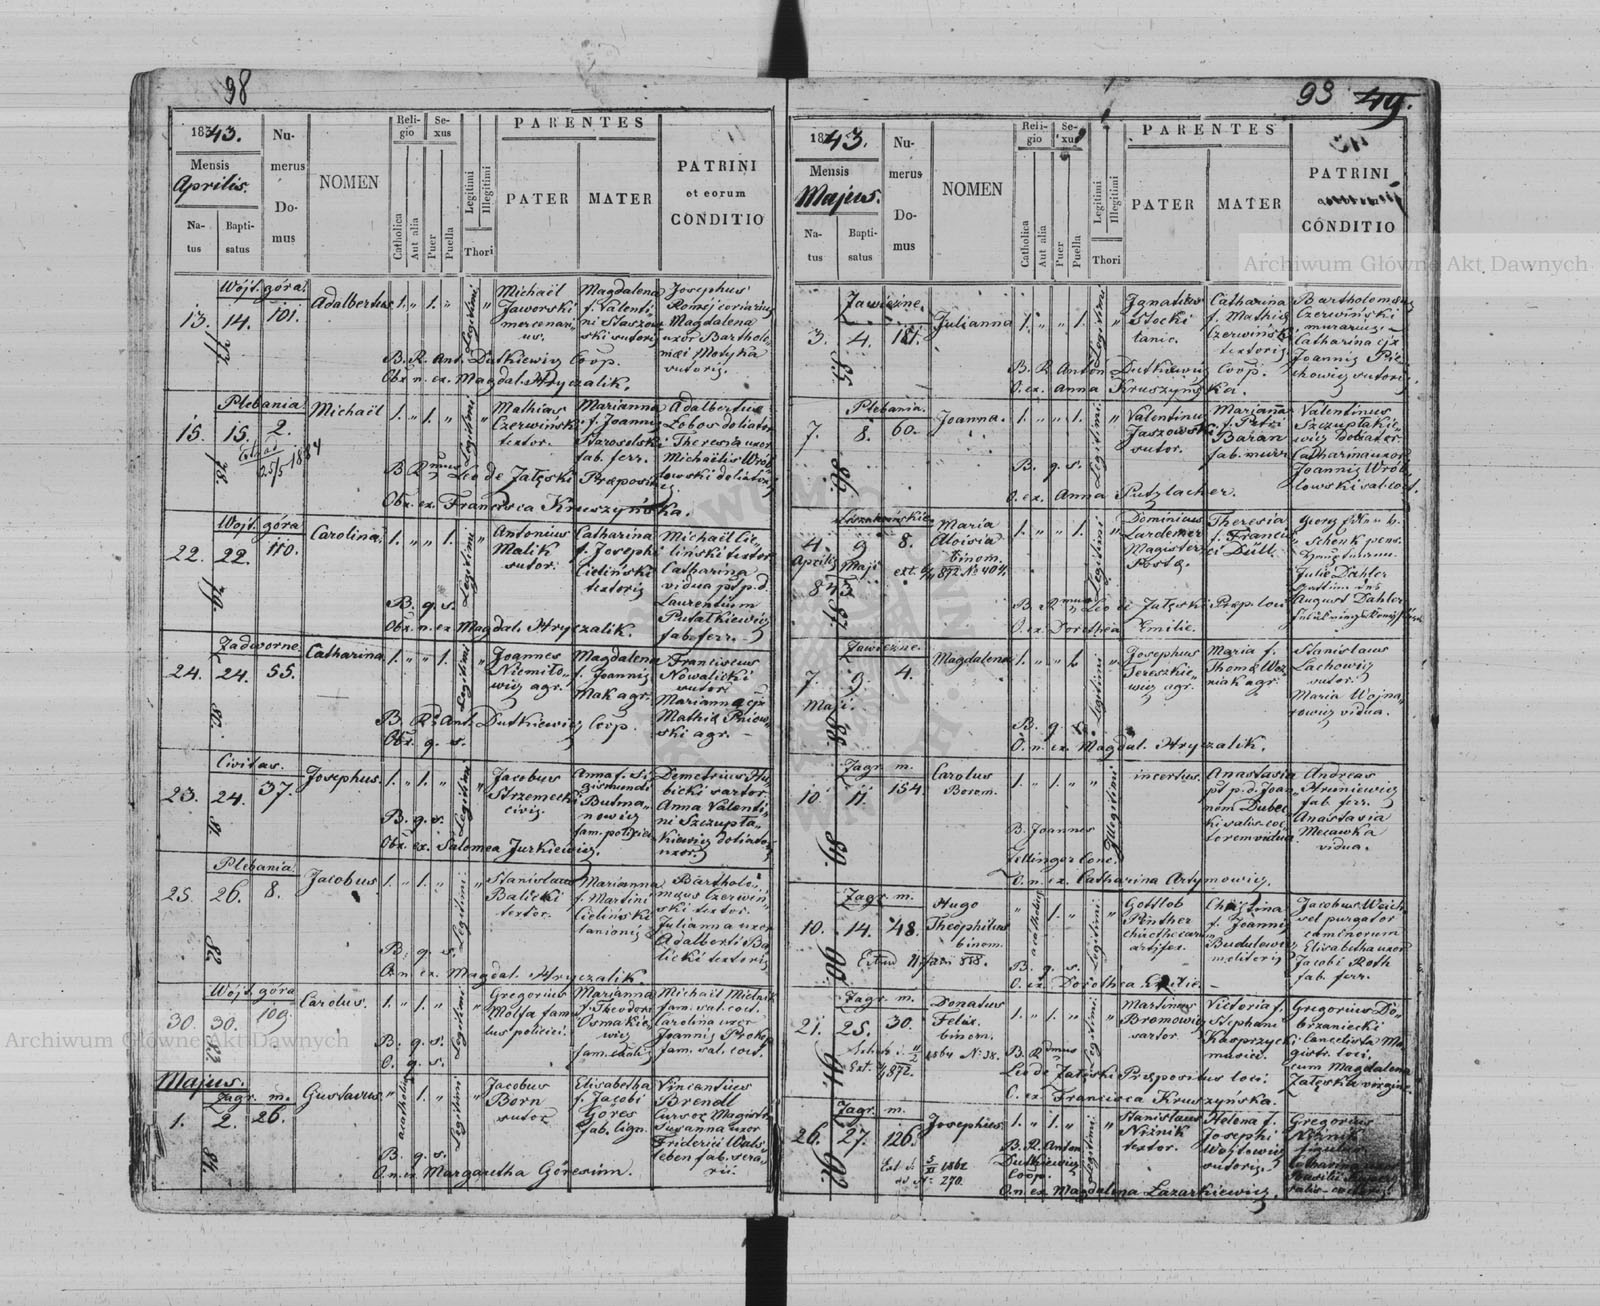 98
1843.
Mensis
Aprilis.
Na-
tus
Bapti-
satus
Nu-
merus
Do-
mus
NOMEN
Reli-
gio
Catholica
Aut alia
Se-
xus
Puer
Puella
Legitimi
Illegitimi
Thori
PARENTES
PATER
MATER
PATRINI
et eorum
CONDITIO
Wojt. góra.
13. 14. 101. Adalbertus 1. " 1. " Legitimi "
77
Michaël
Jaworski
mercenari
us.
Magdalena
f. Valenti
ni Staszew
ski sutoris
Josephus
coriarius
Magdalena
uxor Bartholo-
mæi Motyka
sutoris.
B. R. Ant. Dutkiewicz Coop.
Obx. n. ex. Magdal. Hryczalik.
Plebania
15. 15. 2. Michaël 1. " 1. " Legitimi "
78.
Mathias
Czerwiński
textor.
Marianna
f. Joannis
Starosolski
fab. ferr.
Adalbertus
Lobos doliator
Theresia uxor
Michaëlis Wrób
lowski doliatoris
B. R. Leo de Załęski Præpositus
Obx. ex. Francisca Kruszyńska.
Wojt. góra
22. 22. 110. Carolina. 1. " " 1. Legitimi "
79.
Antonius
Malik
sutor.
Catharina
f. Josephi
Cieliński
textoris
Michaël Cie-
liński textor
Catharina
vidua p. p. d.
Laurentium
Putatkiewicz
fab. ferr.
B. q. s.
Obx. n. ex Magdal. Hryczalik.
Zadworne.
24. 24. 55. Catharina 1. " " 1. Legitimi "
80.
Joannes
Niemiło-
wicz agr.
Magdalena
f. Joannis
Mak agr.
Franciscus
Nowalicki
sutor
Marianna cjx
Mathiæ
ski agr.
B. R. Ant. Dutkiewicz Coop.
Obx. q. s.
Civitas.
23. 24. 37. Josephus. 1. " 1. " Legitimi "
81.
Jacobus
Strzemecki
civis.
Anna f. Si
gismundi
Butma-
nowicz
Demetrius Hu-
bicki sartor.
Anna Valenti-
ni Szczupta-
kiewicz doliatoris
uxor.
B. q. s.
Obx. ex. Salomea Jurkiewicz.
Plebania
25. 26. 8. Jacobus 1. " 1. " Legitimi "
82
Stanislaus
Balicki
textor.
Marianna
f. Martini
Cieliński
lanionis
Bartholo-
mæus Czerwiń-
ski textor.
Julianna uxor
Adalberti Ba
licki textoris
B. q. s.
O. n. ex. Magdal. Hryczalik.
Wojt. góra
30. 30. 109. Carolus. 1. " 1. " Legitimi "
83.
Gregorius
Molfa fam
lus policiei.
Marianna
f. Theodori
Osmakie
wicz
Michaël Mielnik
fam. sal. coct.
Carolina uxor
Joannis Prokop
fam. sal. coct.
B. q. s.
O. q. s.
Majus.
Zagr. m.
1. 2. 26. Gustavus " acatholica 1. " Legitimi "
84.
Jacobus
Born
sutor
Elisabetha
f. Jacobi
Göres
fab. lign.
Vincentius
Brendl
Cursor Magistr.
Susanna uxor
Friderici Wals
leben fab. serra-
rii
B. q. s.
O. n. ex Margaretha Göresinn.
93 49.
1843.
Mensis
Majus.
Na-
tus
Bapti-
satus
Nu-
merus
Do-
mus
NOMEN
Reli-
gio
Catholica
Aut alia
Se-
xus
Puer
Puella
Legitimi
Illegitimi
Thori
PARENTES
PATER
MATER
PATRINI
CONDITIO
Archiwum Główne Akt Dawnych
Zawiezne.
3. 4. 181. Julianna 1. " " 1. Legitimi "
85.
Ignatius
Stocki
lanio.
Catharina
f. Mathiæ
Czerwiński
textoris
Bartholomæus
Czerwiński
murarius.
Catharina cjx
Joannis Pie-
chowicz sutoris.
B. R. Anton Dutkiewicz Coop.
O. ex. Anna Kruszyńska.
Plebania.
7. 8. 60. Joanna. 1. " " 1. Legitimi "
86.
Valentinus
Jaszowski
sutor.
Marianna
f. Petri
Baran
fab. murr.
Valentinus
Szczuptakie-
wicz doliator
Catharina uxor
Joannis Wrób
lowski sal. coct.
B. q. s.
O. ex. Anna Putzlacher.
4. Aprilis 9 Maji 8. Maria
Aloisia
binom.
843.
87.
1. " " 1. Legitimi
Dominicus
Lardemer
Magister
Postæ.
Theresia
f. Francis
ci Düll
Georg
Schenk pens.
Hauptmann.
Julie Dahler
August Dahler
B. R. Leo de Załęski Præp. loci
O. ex. Dorothea Emilie.
Zawiezne.
7. Maji. 9. 4. Magdalena 1. " " 1. Legitimi "
88.
Josephus
Tereszkie-
wicz agr.
Maria f.
Thomæ Woz
niak agr.
Stanislaus
Lachowicz
sutor.
Maria Wojna-
rowicz vidua.
B. q. s.
O. n. ex. Magdal. Hryczalik.
Zagr. m.
10. 11. 154. Carolus
Borom.
1. " 1. " " Illegitimi
89.
incertus.
Anastasia
pt p. d. Joan-
nem Dubec
ki salis-coc
torem vidua
Andreas
Hruniewicz
fab. ferr.
Anastasia
Mecawka
vidua.
B. Joannes
Tellinger Conc.
O. n. ex. Catharina Artymowicz.
Zagr. m.
10. 14. 48. Hugo
Theophilus
binom.
" acatholica 1. " Legitimi "
90.
Gottlob
Pinther
artifex.
Christina
f. Joannis
Budulowicz
molitoris
Jacobus Weich-
sel purgator
caminorum
Elisabetha uxor
Jacobi Roth
fab. ferr.
B. q. s.
O. ex. Dorothea Emilie.
Zagr. m.
21. 25. 30. Donatus
Felix.
binom.
1. " 1. " Legitimi "
91.
1864 N. 38.
Martinus
Bromowicz
sartor
Victoria f.
Stephani
Kasprzycki
musici.
Gregorius Do-
brzaniecki
Cancelista Ma-
gistr. loci.
cum Magdalena
Załęska virgine.
B. R.
Leo de Załęski Præpositus loci.
O. ex Francisca Kruszyńska.
Zagr. m.
26. 27. 126. Josephus. 1. " 1. " Legitimi "
92.
1862
270.
Stanislaus
Niznik
textor.
Helena f.
Josephi
Wojtowicz
sutoris.
Gregorius
Niznik
figulus
Catharina uxor
B. R. Anton
Dutkiewicz
Coop.
O. n. ex Magdalena Lazarkiewicz.
Archiwum Główne Akt Dawnych